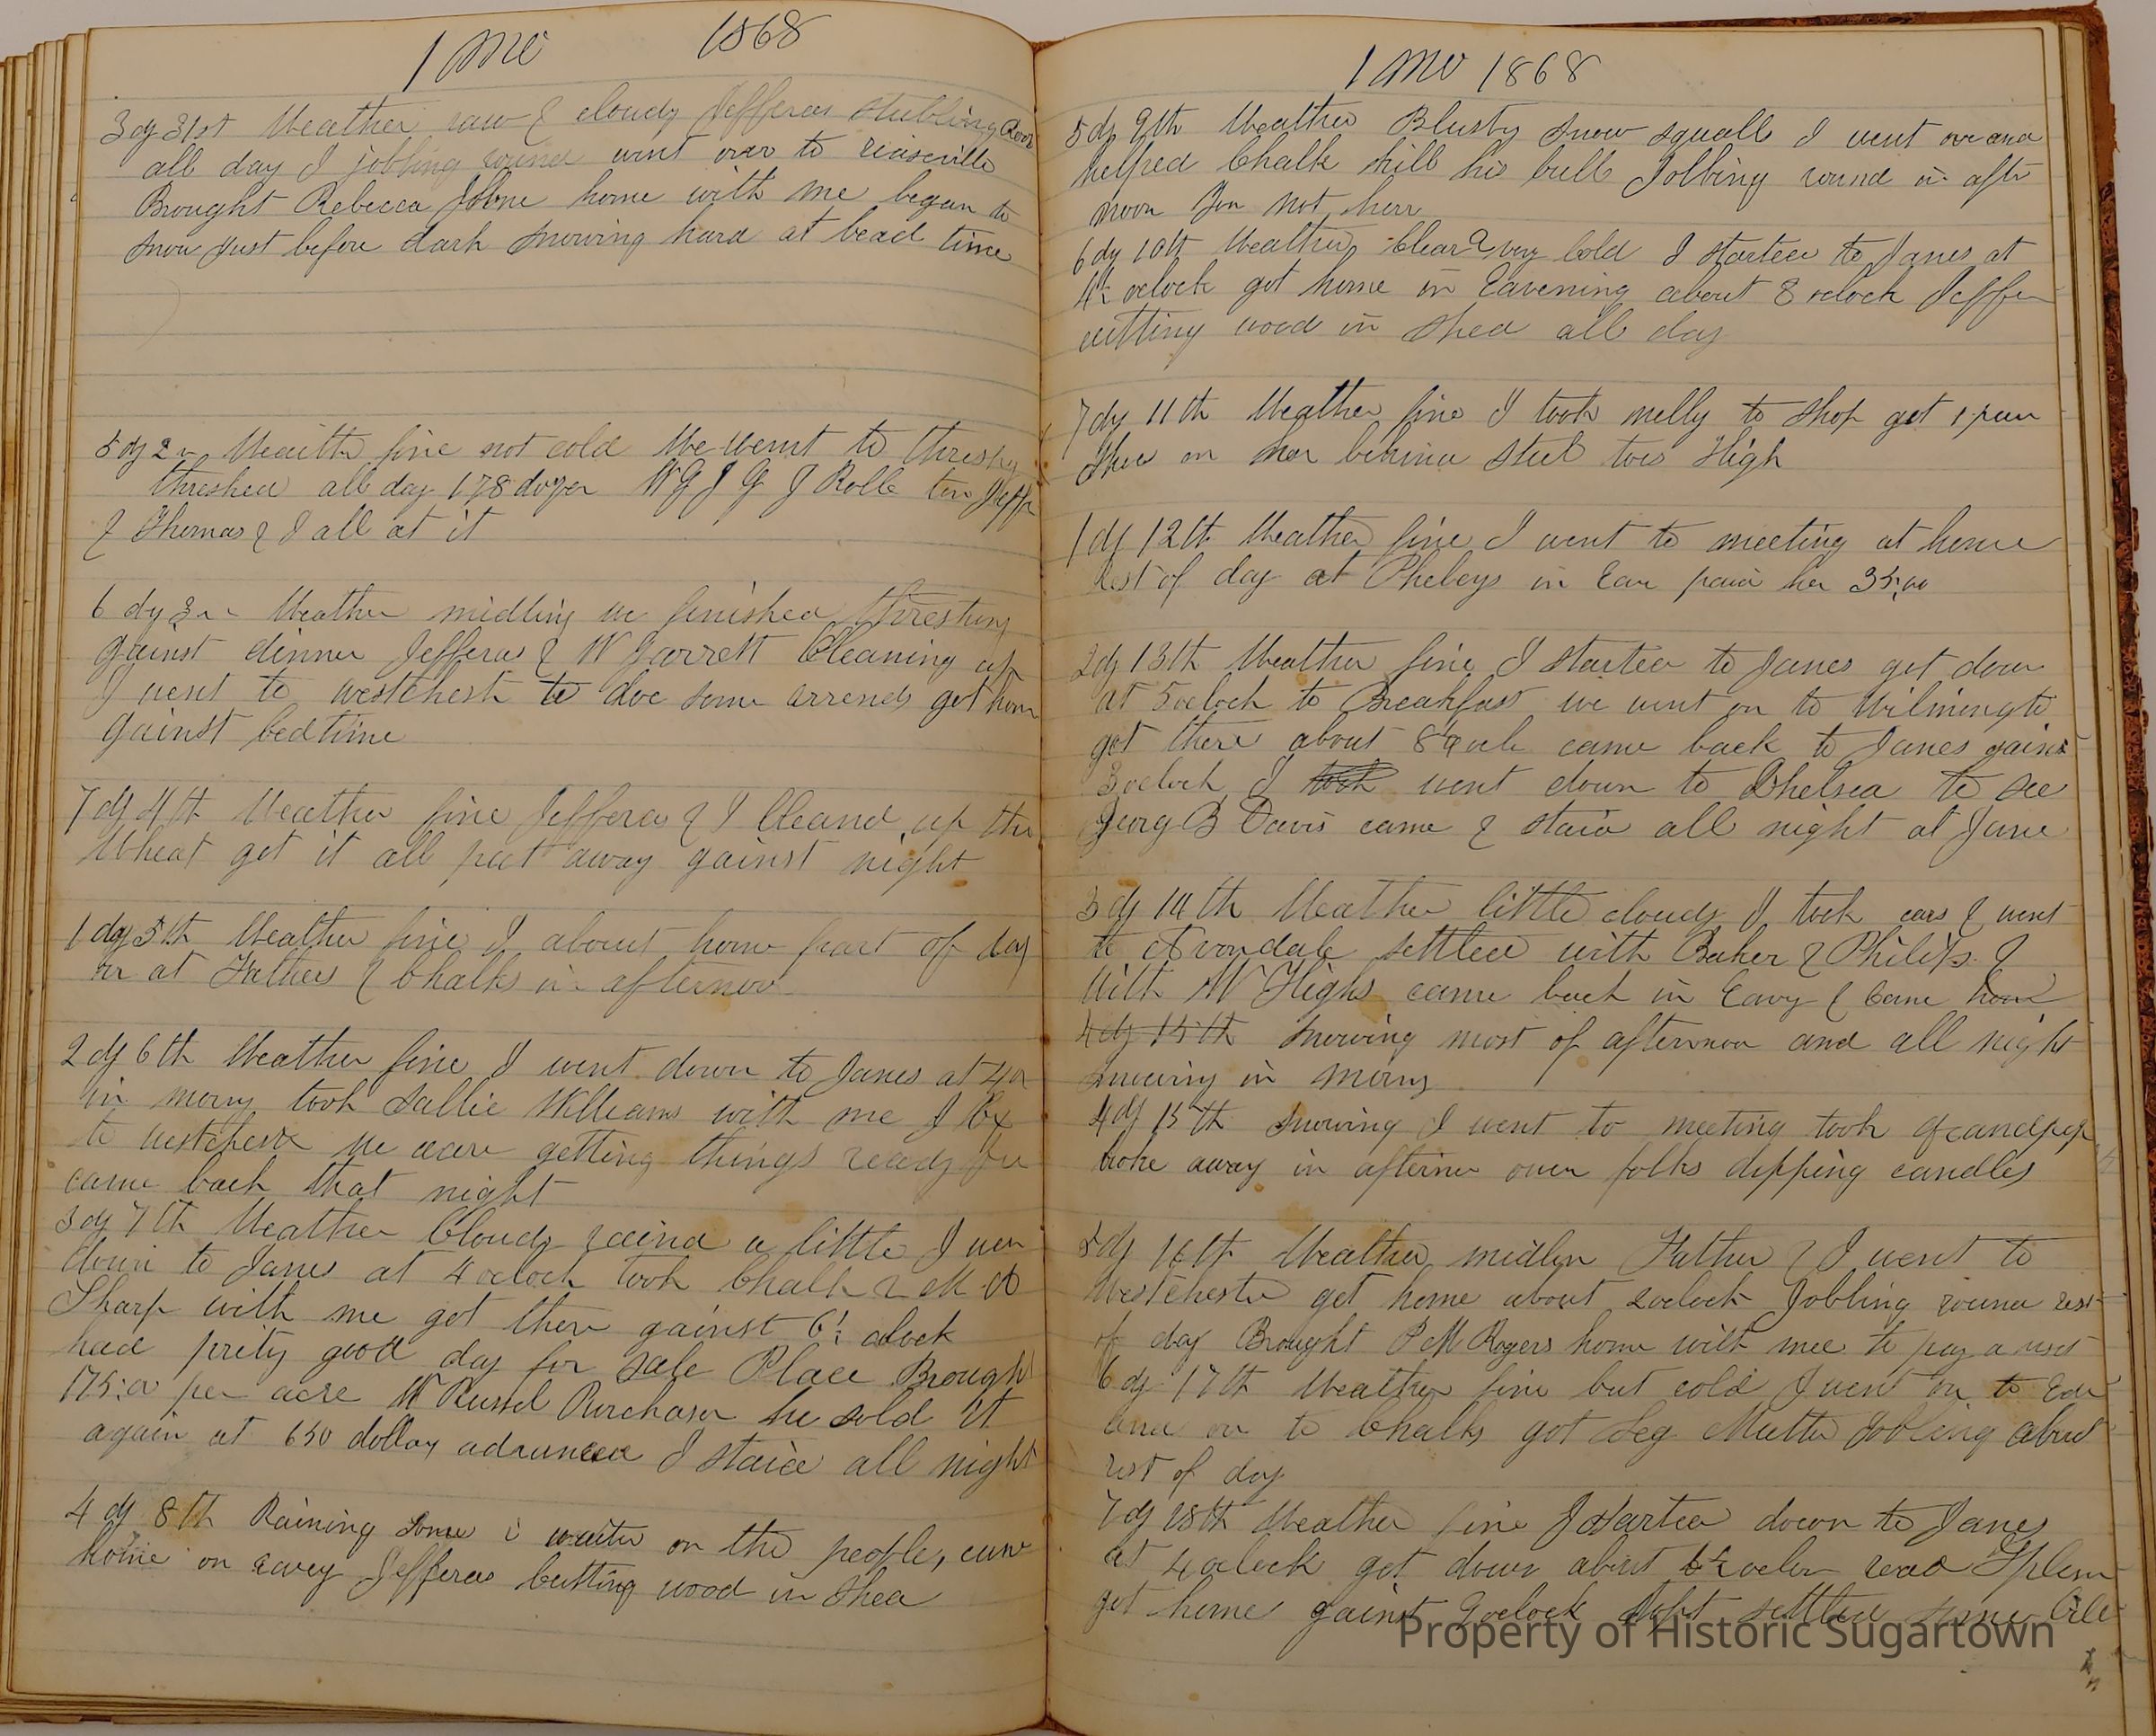 1 mo 1868
3 dy 31st Weather raw & cloudy Jefferas stubling
all day I jobbing round went over to
Brought Rebecca Jobne home with me began to
snow just before dark snowing hard at bead time
5 dy 2n Weaith fine not cold We went to
threshed all day 178 dozen W G J G J Rolle
& Thomas & I all at it
6 dy 3n Weather midling we finished threshing
gainst dinner Jefferas & W Garrett Cleaning up
I went to westchest to doe some arrends got hom
gainst bedtime
7 dy 4th Weather fine Jefferas & I Cleand up the
Wheat got it all put away gainst night
1 day 5th Weather fine I about home part of day
at Fathers & Chalks in afternoo
2 dy 6th Weather fine I went down to Janes at 4
in morny took Sallie Williams with me I
to westchest we ware getting things ready
came back that night
3 dy 7th Weather Cloudy raind a little I wen
down to Janes at 4 oclock took Chalk & M A
Sharp with me got there gainst 6½ olock
had prity good day for sale Place Brought
175; per acre W Russel Purchaser he sold it
again at 650 dollay I staid all night
4 dy 8th Raining some i waited on the people, came
home on eavey Jefferas Cutting wood in shea
1 mo 1868
5 dy 9th Weather Blusty snow squall I went over and
helped Chalk kill his bull Jobbing round in aftr
noon not here
6 dy 10th Weather Clear & very Cold I started to Janes at
4½ oclock got home in Eavening about 8 oclock Jeffer
cutting wood in shed all day
7 dy 11th Weather fine I took nelly to shop got 1 pair
Shoes on her behind steel toes High
1 dy 12th Weather fine I went to meeting at home
Rest of day at Phebeys in Eave paid her 35;00
2 dy 13th Weather fine I started to Janes got down
at 5 oclock to Breakfast we went on to Wilmingto
got there about 8 came back to Janes gainst
3 oclock I took went down to Chelsea to see
Georg B Davis came & staid all night at Jane
3 dy 14th Weather little cloudy I took cars & went
to Avondale settled with Baker & Philips &
With W Highs came back in Eavy & Came home
4 dy 15th snowing most of afternoon and all night
snowing in morny
4 dy 15th snowing I went to meeting took
broke away in afternoo folks dipping candles
5 dy 16th Weather midlin Father & I went to
Westchester got home about 2 oclock Jobbling round rest
of day Brought P M Rogers home with mee to pay a visit
6 dy 17th Weather fine but cold I went on to
and on to Chalks got Leg Mutto jobling about
rest of day
7 dy 18th Weather fine I started down to Janes
at 4 oclock got down about 6½ oclok
got home gainst 9 oclock settled some
Property of Historic Sugartown